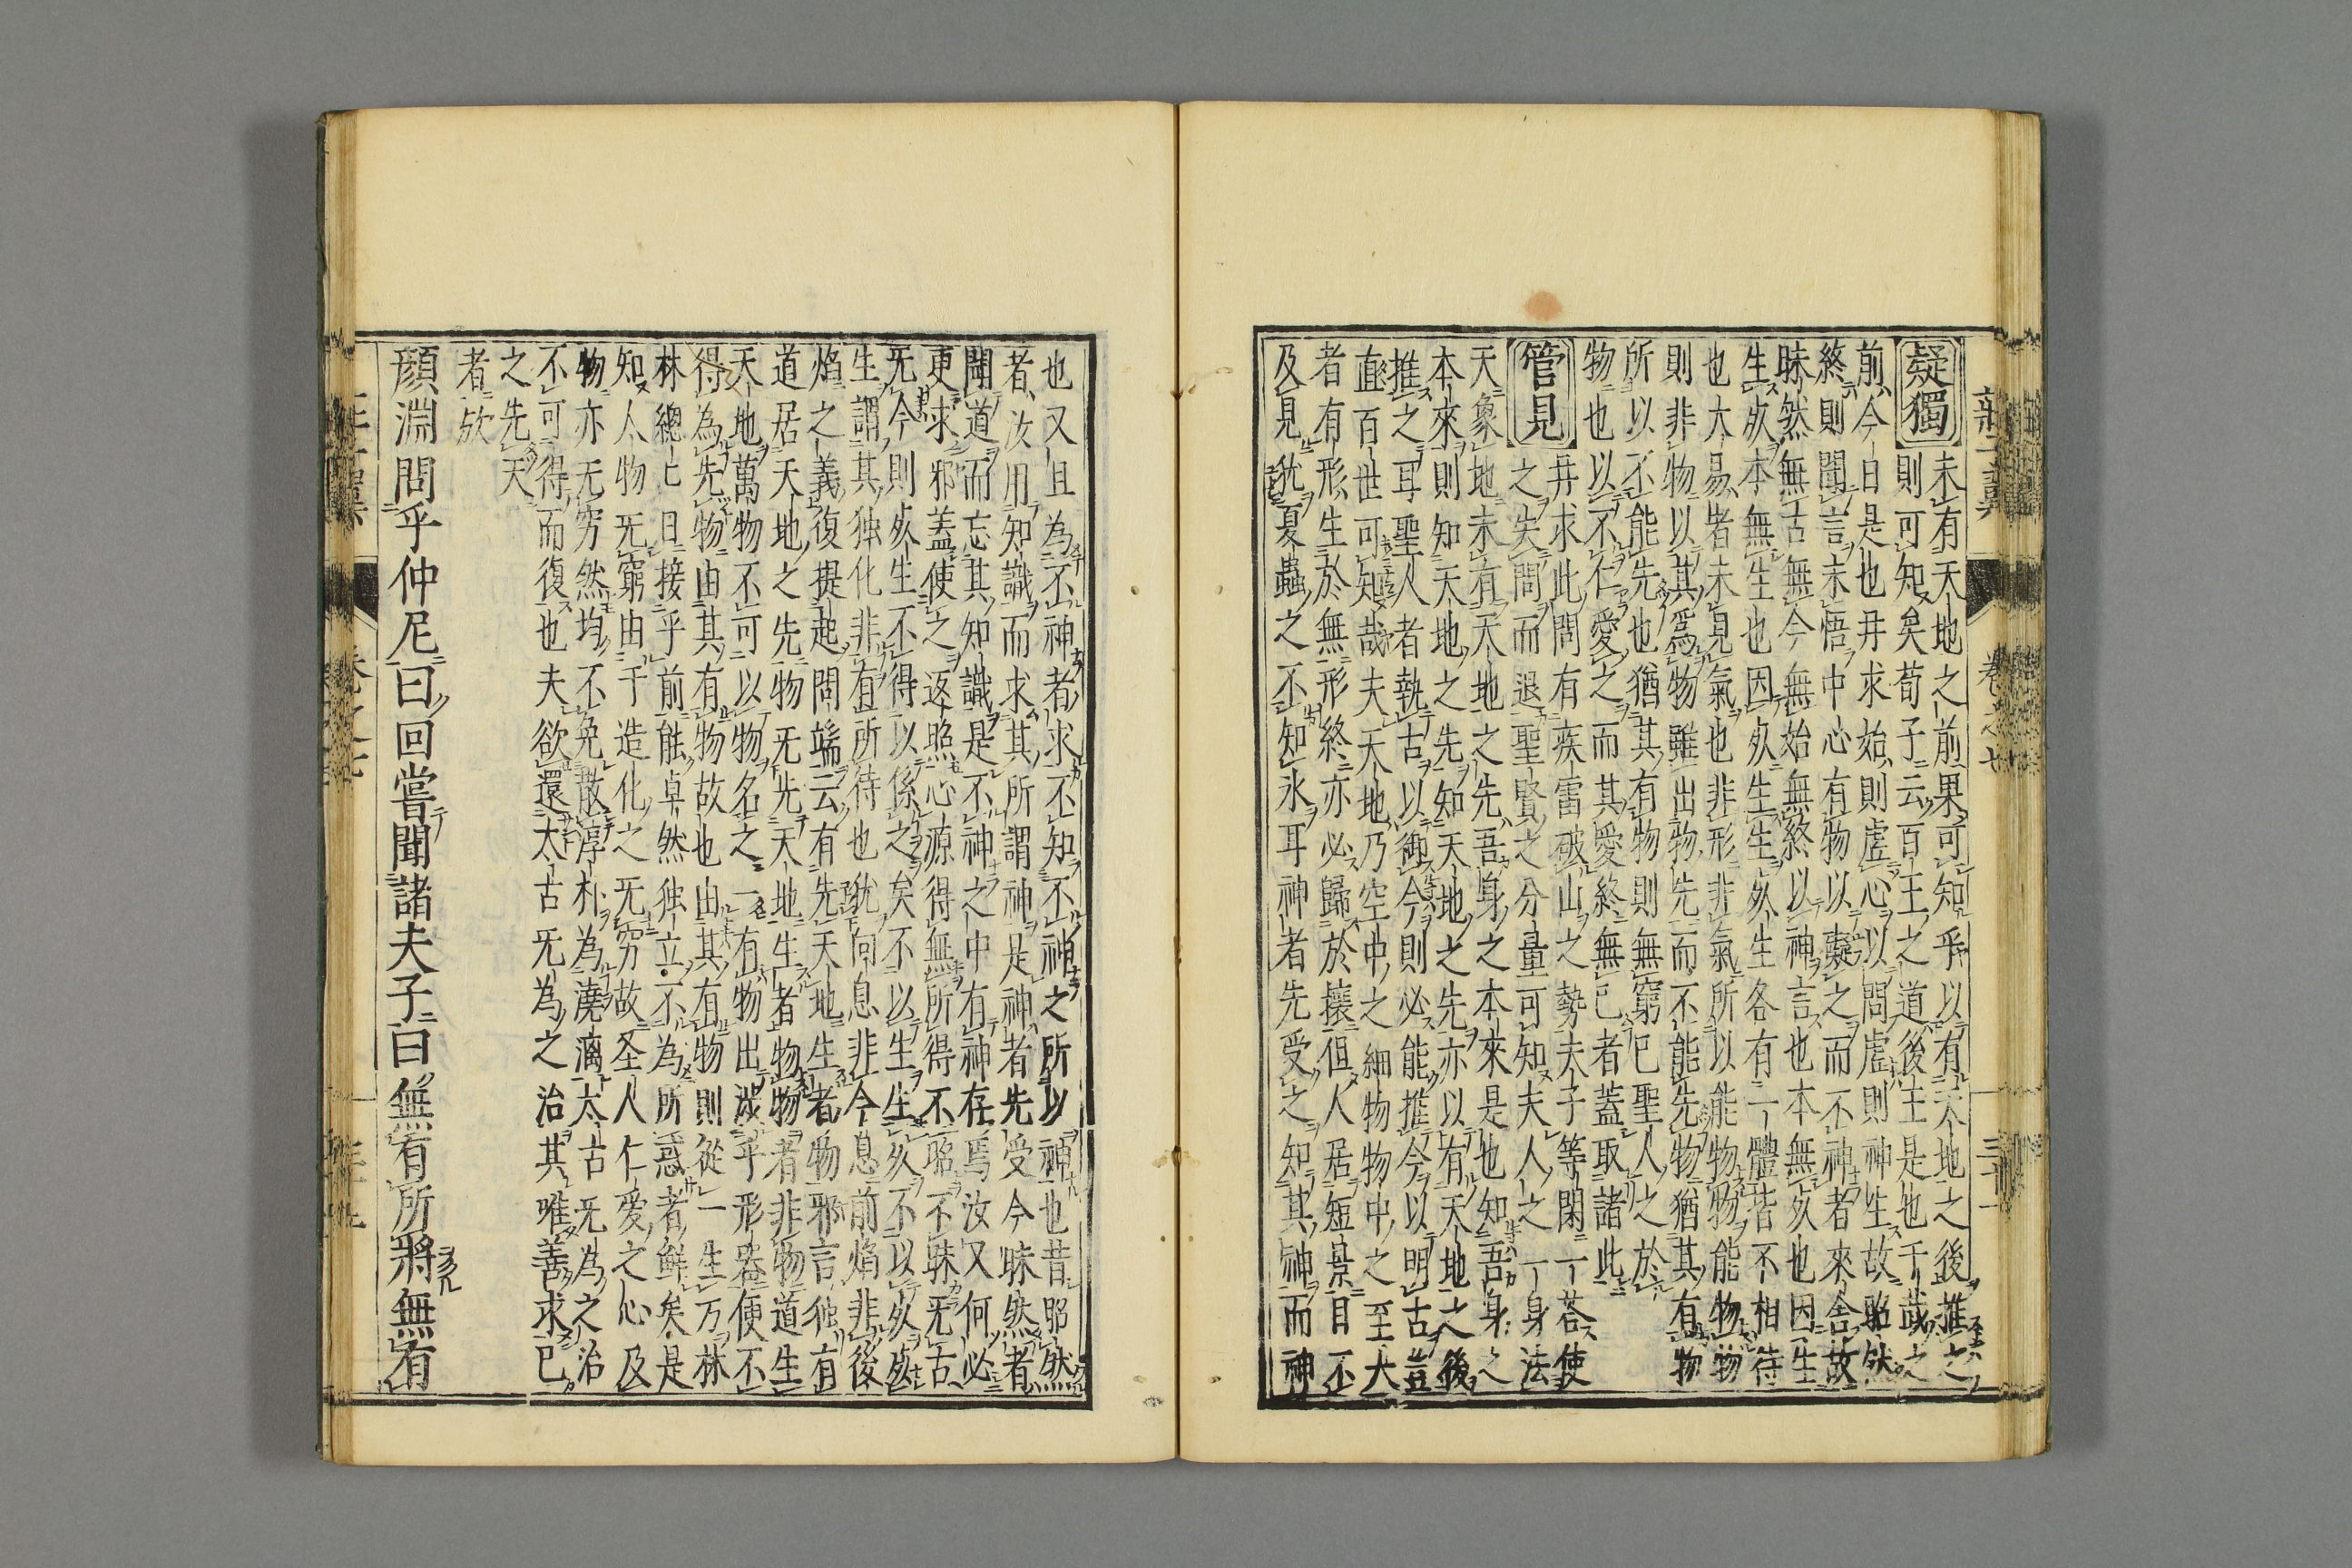 疑獨
未有天地之前果可知乎以有天地之後推之
則可知矣荀子云百王之道後王是也千歲之
前今日是也冉求始則虛心以問虛則神生故昭然
終則聞言未悟中心有物以礙之而不神者來舍故
昧然無古無今無始無終以神言也本無死也因生
生死本無生也因死生生死生各有一體皆不相待
也大易者未見氣也非形非氣所以能物物能物物
則非物以其爲物雖出物先而不能先物猶其有物
所以不能先也猶其有物則無窮已聖人之於
物也以不仁愛之而其愛終無已者蓋取諸此
管見
冉求此問有疾雷破山之勢夫子等閑一荅使
之失問而退聖賢之分量可知夫人之一身法
天象地未有天地之先吾身之本來是也知吾身之
本來則知天地之先知天地之先亦以有天地之後
推之耳聖人者執古以御今則必能推今以明古豈
直百世可知哉夫天地乃空中之細物物中之至大
者有形生於無形終亦必歸於壞但人居短景目不
及見犹夏蟲之不知氷耳神者先受之知其神而神
也又且為不神者求不知不神之所以神也昔昭然
者汝用知識而求其所謂神是神者先受今昧然者
聞道而忘其知識是不神之中有神存焉汝又何必
更求邪蓋使之返照心源得無所得不昭不昧无古
无今則死生不得以係之矣不以生生死不以死死
生謂其独化非有所待也犹向息非今息前焰非後
焰之義復提起問端云有先天地生者物邪言独有
道居天地之先物无先天地生者物物者非物道生
天地萬物不可以物名之一有物出涉乎形器便不
得為先物由其有物故也由其有物則從一生万林
林總匕日接乎前能卓然独立不為所惑者鮮矣是
知人物无窮由于造化之无穷故圣人仁爱之心及
物亦无穷然均不免散淳朴為澆漓太古无為之治
不可得而復也夫欲還太古无為之治其唯善求已
之先天
者欤
顔淵問乎仲尼曰回嘗聞諸夫子曰無有所將無有
卷之七
三十一